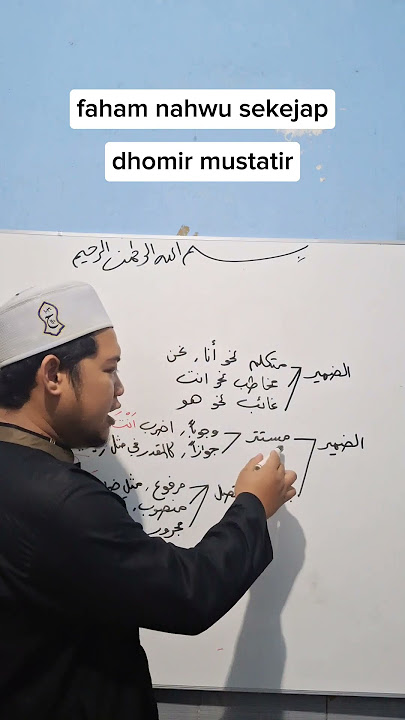 faham nahwu sekejap
dhomir mustatir
بسم الله الرحمن الرحيم
الضمير
متكلم نحو أنا, نحن
مخاطب نحو انت
غائب نحو هو
الضمير
مستتر
وجوباً, اضرب أَنْتَ
جوازاً, كالمقدر في مثل
مرفوع, مثل
منصوب,
مجرور